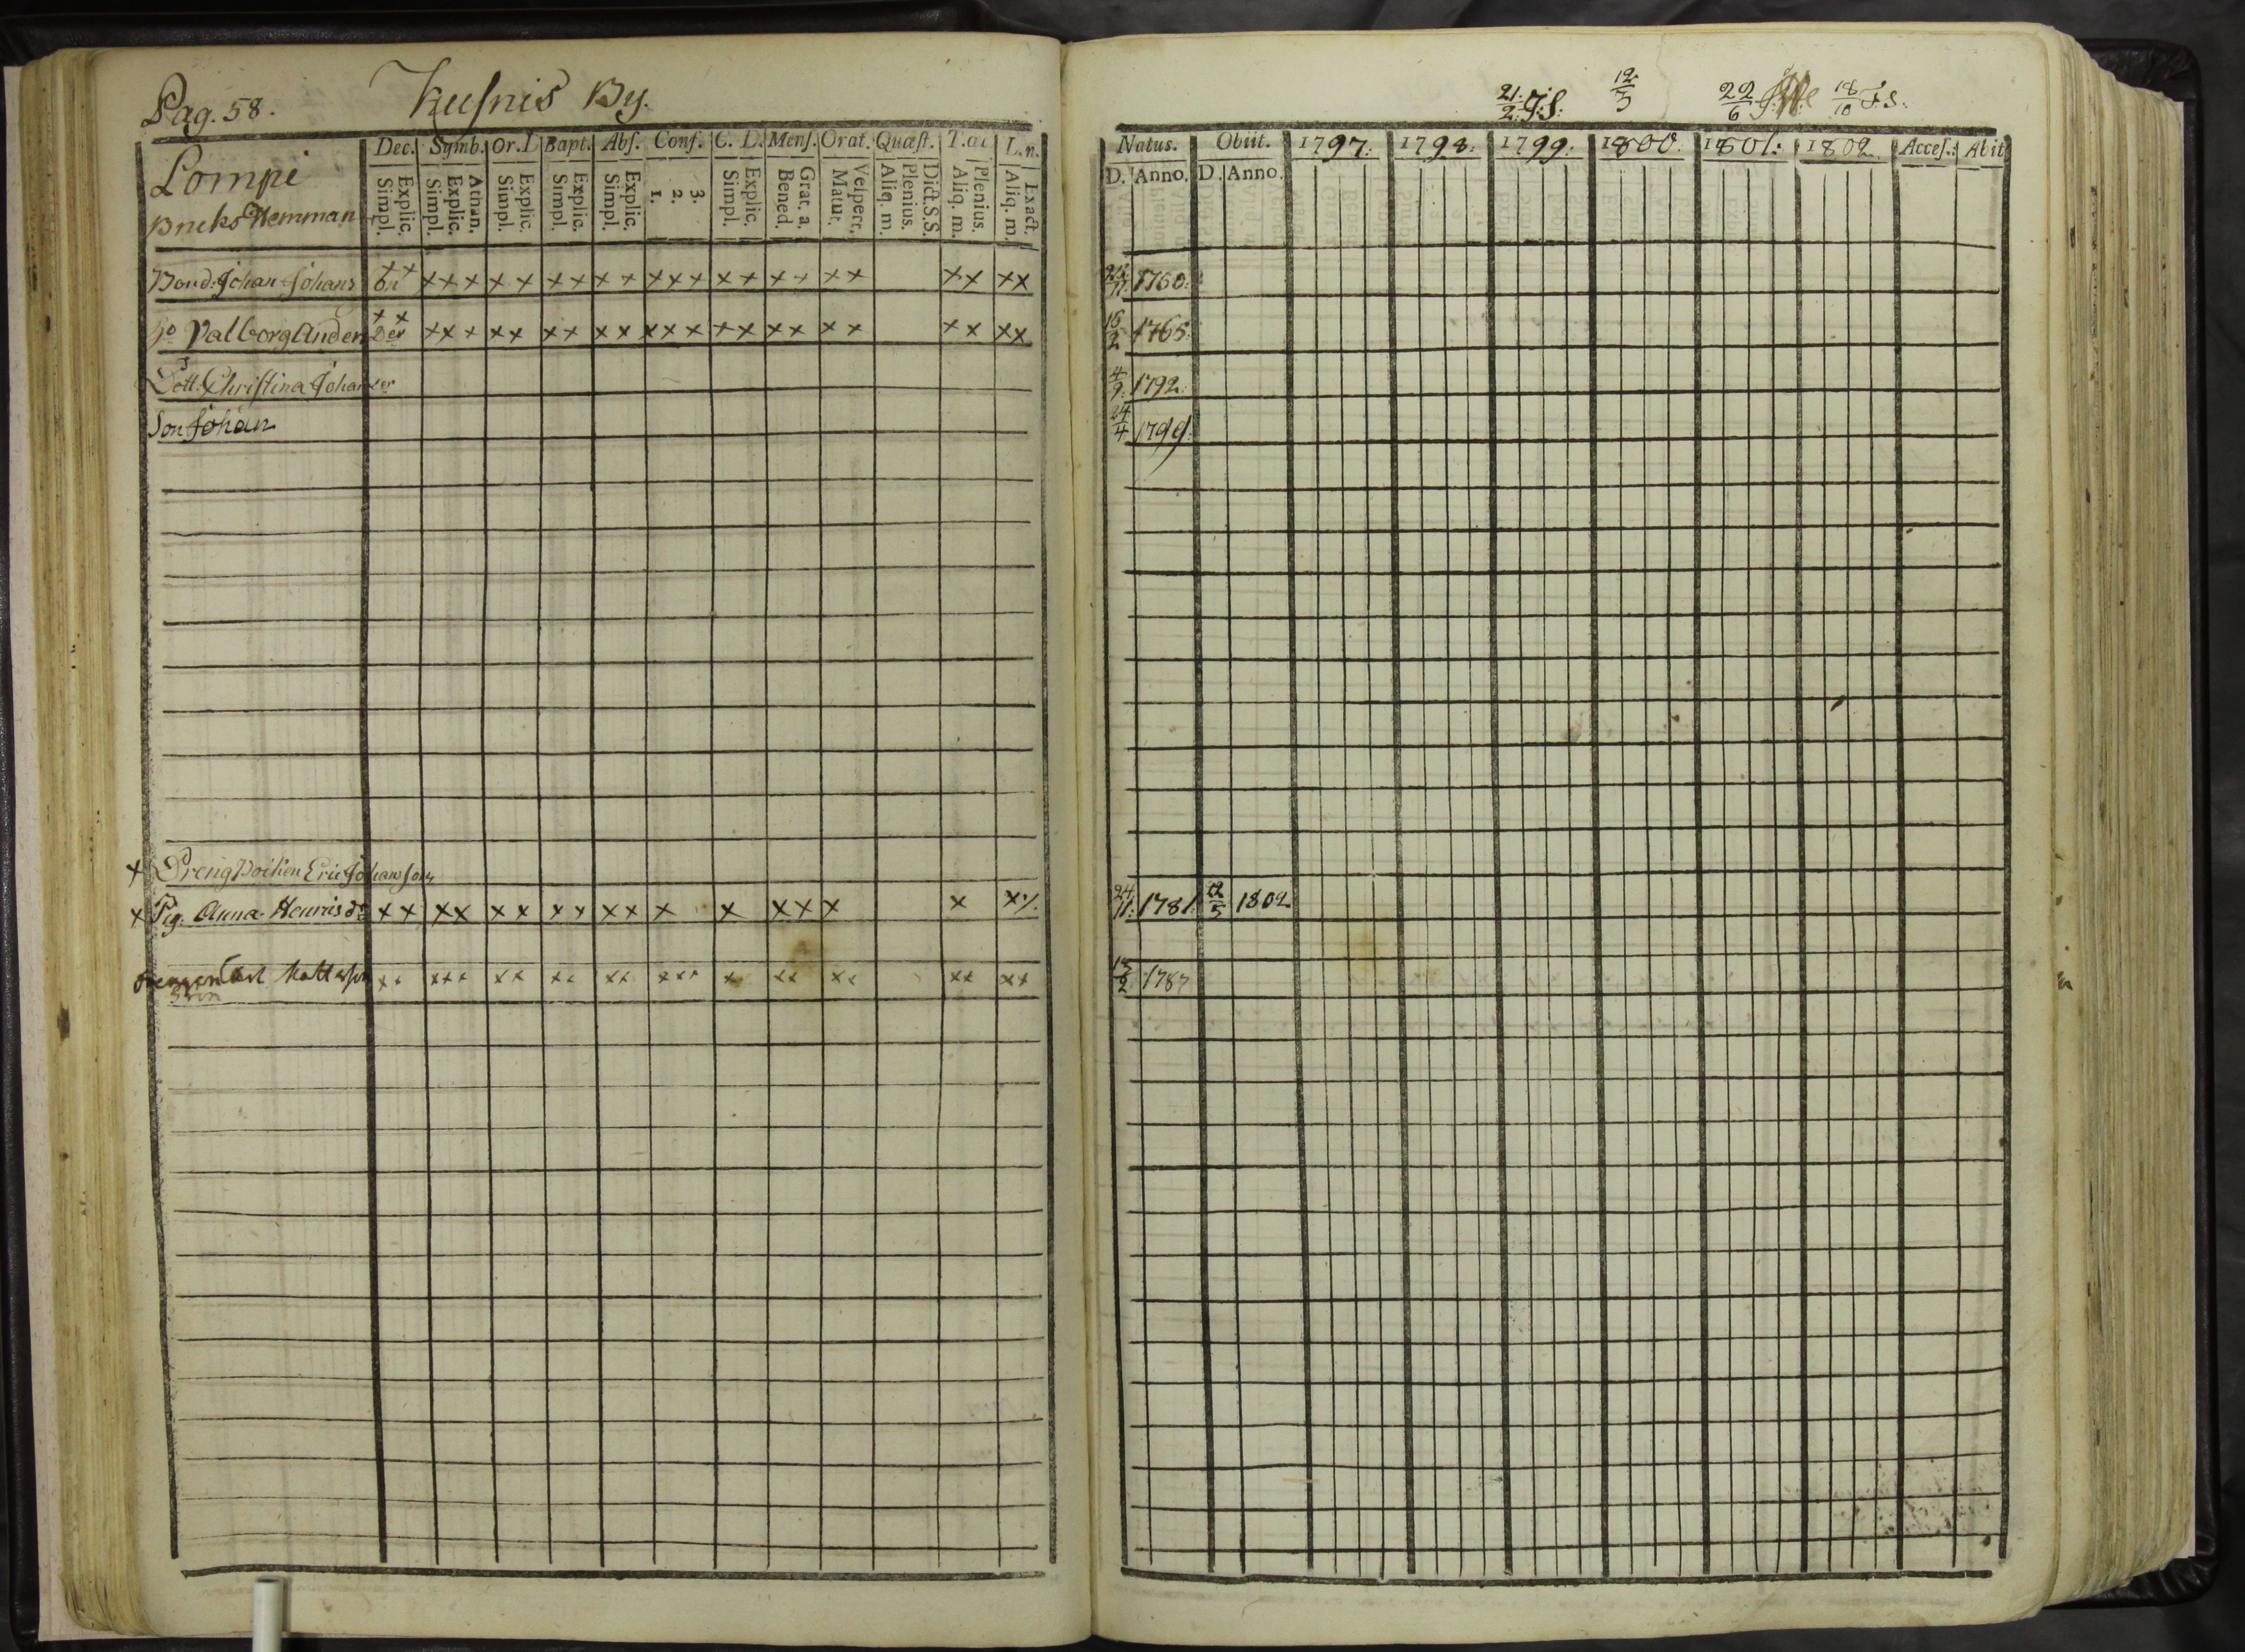 Pag. 58. Kusnis By.
Lompi
Bruks Hemman
Dec. Symb. Or. D Bapt. Abs. Conf. C. D. Mens. Orat. Quæst. T. L. n.
Explic. Simpl. Athan. Explic. Simpl. Explic. Simpl. Explic. Simpl. Explic. Simpl. 3. 2. 1. Explic. Simpl. Grat. a. Bened. Vesper. Matut. Dict.S.S. Plenius. Aliq. m. Plenius. Aliq. m. Exact. Aliq. m.
Bond: Johan Johans x x x x x x x x x x x x x x x x x x x x x x x x
Valborg Anders Der x x x x x x x x x x x x x x x x x x x x x x x x
Dott: Christina Johans der
Son Johan
x Dreng Poiken Eric Johansson
x Pig. Anna Henrics dr x x x x x x x x x x x x x x x x x
Carl Matts son x x x x x x x x x x x x x x x x x x x x x x
21/2 J.S. 12/3 22/6 18/10 J.S.
Natus. Obiit. 1797. 1798. 1799. 1800. 1801. 1802. Acces. Abit
D. Anno. D. Anno.
1760.
16/2 1765.
4/9 1792.
24/4 1799.
24/11 1781 12/5 1802
1787